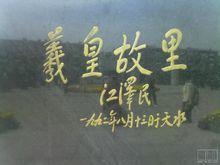 羲皇故里
江泽民
一九九二年八月十三日于天水